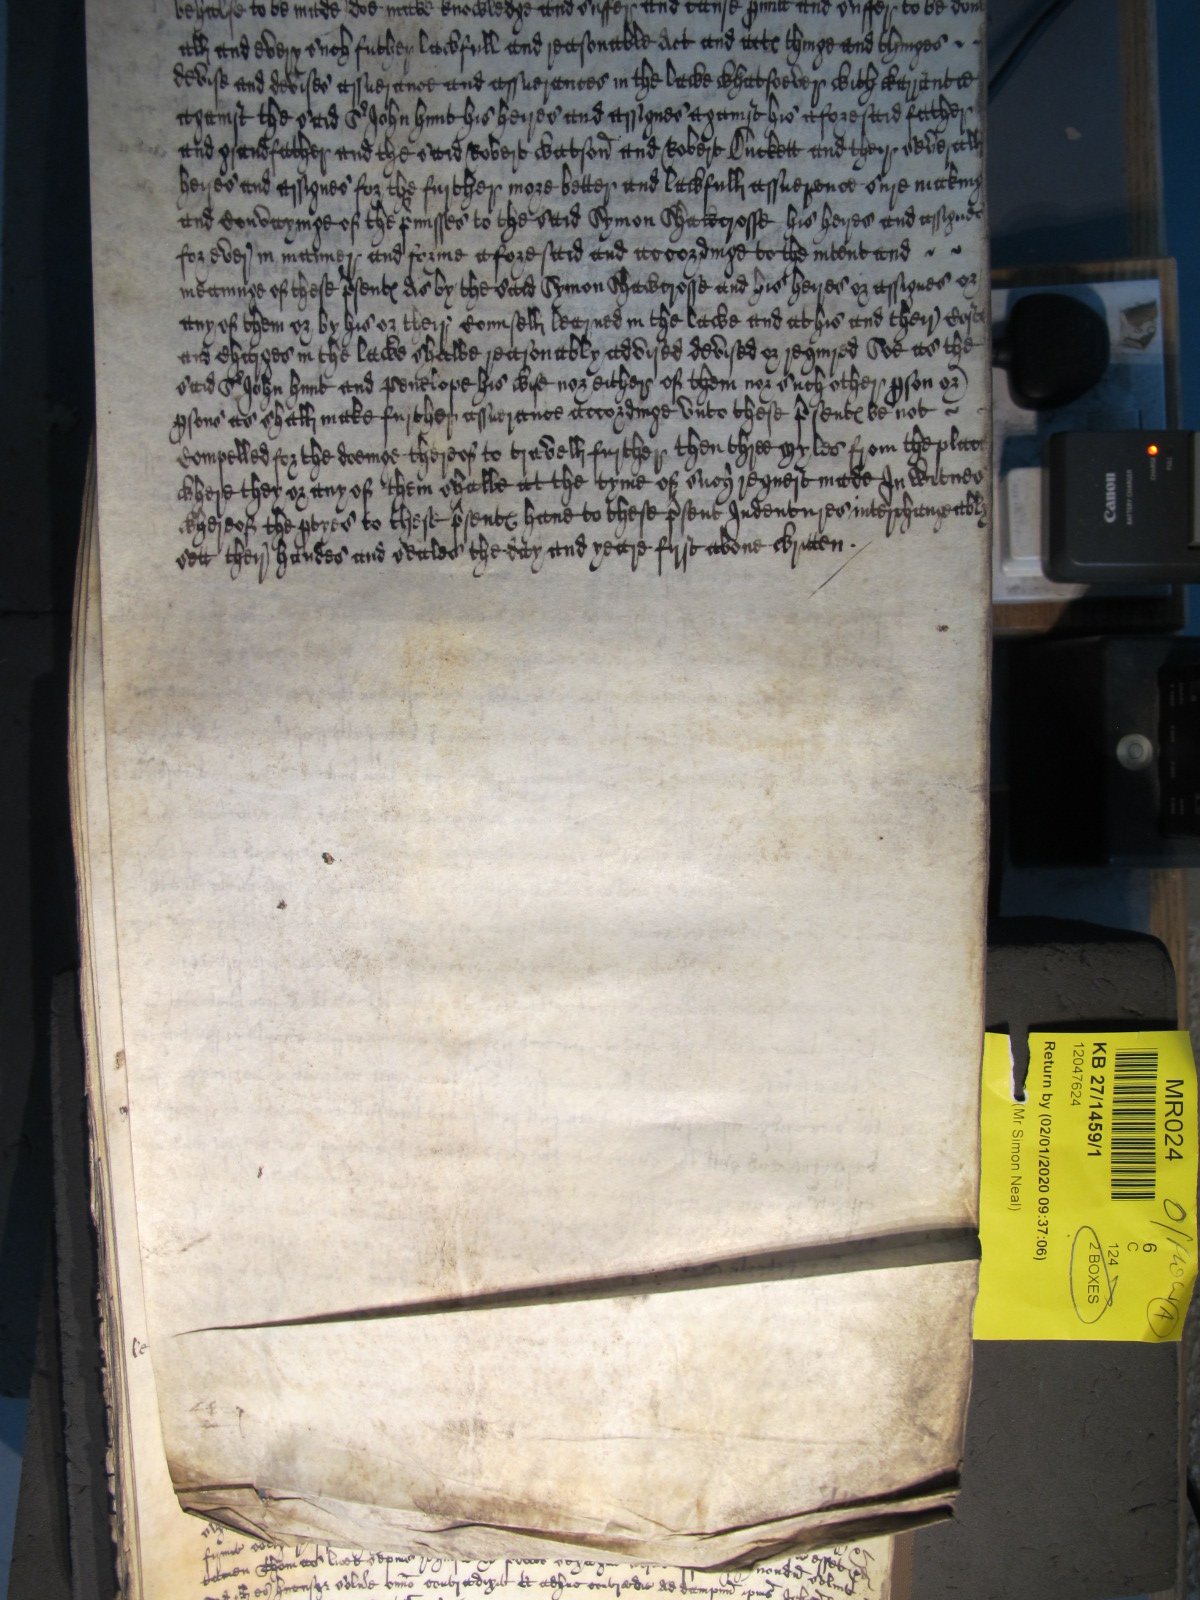 behalfe to be made doe make knowledge and suffer and cause pmitt and suffer to be don
all and every such futher lawfull and reasonable Act and acte thinge and thinges
devise and devises assuerance and assuerances in the lawe whatsoever with warrantie
against the said Sr John Hunt his heyres and assignes against his aforesaid father
and grandfather and the said Robert Watson and Robert Duckett and theyr severall
heyres and assignes for the further more better and lawfull assuerance sure making
and convayinge of the pmisses to the said Symon Shawcrosse his heyres and assignes
for ever in manner and forme aforesaid and accordinge to the intent and
meaninge of these psente As by the said Symon Shawcrosse and his heyres or assignes or
any of them or by his or their Counsell learned in the lawe and at his and their Coste
and Charges in the lawe shalbe reasonably advised devised or required Soe as the
said Sr John Hunt and Penelope his wife nor either of them nor such other pson or
psons as shall make further assuerance accordinge unto these psente be not
Compelled for the doeinge thereof to travell further then three myles from the place
where they or any of them shalbe at the tyme of such request made In witnes
whereof the ptyes to these psente have to these psent Indentures interchangeably
sett their handes and seales the day and yeare first above written.
Canon
MR024
KB 27/1459/1
12047624
Return by (02/01/2020 09:37:06)
(Mr Simon Neal)
6
C
124
2 BOXES